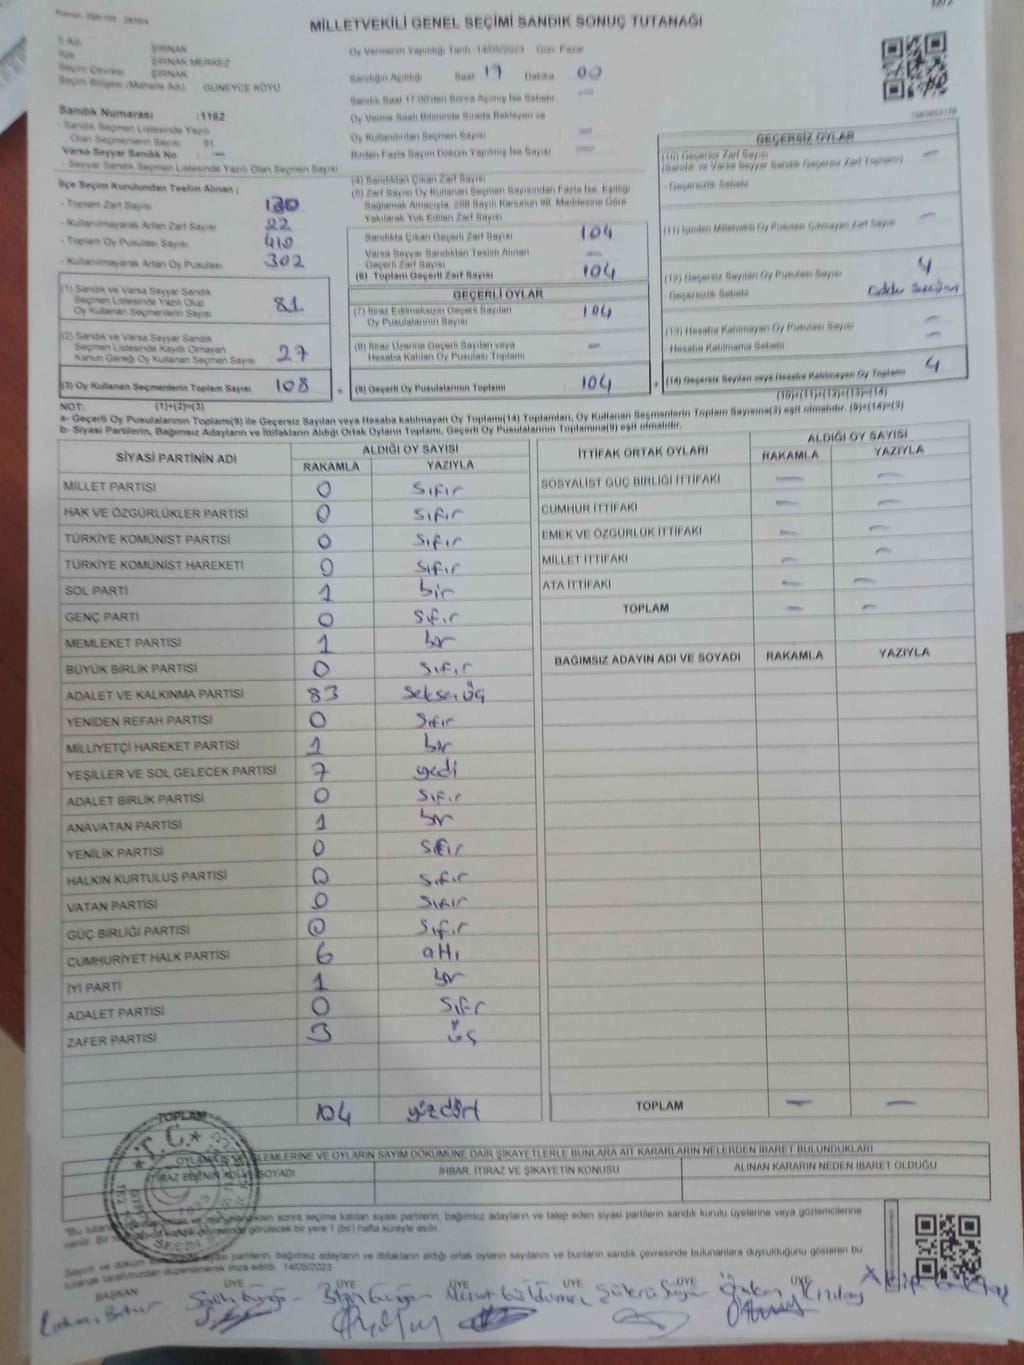 MİLLETVEKİLİ GENEL SEÇİMİ SANDIK SONUÇ TUTANAĞI
ŞIRNAK
İlçe ŞIRNAK MERKEZ
Seçim Çevresi ŞIRNAK
Seçim Bölgesi (Mahalle Adı) GÜNEYCE KÖYÜ
Sandık Numarası :1162
- Sandık Seçmen Listesinde Yazılı
Olan Seçmenlerin Sayısı
Varsa Seyyar Sandık No : —
- Seyyar Sandık Seçmen Listesinde Yazılı Olan Seçmen Sayısı
Oy Vermenin Yapıldığı Tarih :14/05/2023 Gün: Pazar
Sandığın Açıldığı Saat 17 Dakika 00
Sandık Saat 17.00'den Sonra Açılmış İse Sebebi —
Oy Verme Saati Bitiminde Sırada Bekleyen ve
Oy Kullandırılan Seçmen Sayısı —
Birden Fazla Sayım Döküm Yapılmış İse Sayısı —
İlçe Seçim Kurulundan Teslim Alınan :
- Toplam Zarf Sayısı 130
- Kullanılmayarak Artan Zarf Sayısı 22
- Toplam Oy Pusulası Sayısı 410
- Kullanılmayarak Artan Oy Pusulası 302
(1) Sandık ve Varsa Seyyar Sandık
Seçmen Listesinde Yazılı Olup
Oy Kullanan Seçmenlerin Sayısı 81
(2) Sandık ve Varsa Seyyar Sandık
Seçmen Listesinde Kayıtlı Olmayan
Kanun Gereği Oy Kullanan Seçmen Sayısı 27
(3) Oy Kullanan Seçmenlerin Toplam Sayısı 108 =
(4) Sandıktan Çıkan Zarf Sayısı
(5) Zarf Sayısı Oy Kullanan Seçmen Sayısından Fazla İse, Eşitliği
Sağlamak Amacıyla, 298 Sayılı Kanunun 98. Maddesine Göre
Yakılarak Yok Edilen Zarf Sayısı
Sandıkta Çıkan Geçerli Zarf Sayısı 104
Varsa Seyyar Sandıktan Teslim Alınan
Geçerli Zarf Sayısı —
(6) Toplam Geçerli Zarf Sayısı 104
GEÇERLİ OYLAR
(7) İtiraz Edilmeksizin Geçerli Sayılan
Oy Pusulalarının Sayısı 104
(8) İtiraz Üzerine Geçerli Sayılan veya
Hesaba Katılan Oy Pusulası Toplamı —
(9) Geçerli Oy Pusulalarının Toplamı 104 +
GEÇERSİZ OYLAR
(10) Geçersiz Zarf Sayısı —
(Sandık ve Varsa Seyyar Sandık Geçersiz Zarf Toplamı)
- Geçersizlik Sebebi
(11) İçinden Milletvekili Oy Pusulası Çıkmayan Zarf Sayısı —
(12) Geçersiz Sayılan Oy Pusulası Sayısı 4
- Geçersizlik Sebebi
(13) Hesaba Katılmayan Oy Pusulası Sayısı —
- Hesaba Katılmama Sebebi —
(14) Geçersiz Sayılan veya Hesaba Katılmayan Oy Toplamı 4
NOT: (1)+(2)=(3)
(10)+(11)+(12)+(13)=(14)
a- Geçerli Oy Pusulalarının Toplamı(9) ile Geçersiz Sayılan veya Hesaba katılmayan Oy Toplamı(14) Toplamları, Oy Kullanan Seçmenlerin Toplam Sayısına(3) eşit olmalıdır. (9)+(14)=(3)
b- Siyasi Partilerin, Bağımsız Adayların ve İttifakların Aldığı Ortak Oyların Toplamı, Geçerli Oy Pusulalarının Toplamına(9) eşit olmalıdır.
SİYASİ PARTİNİN ADI ALDIĞI OY SAYISI
RAKAMLA YAZIYLA
MİLLET PARTİSİ 0 Sıfır
HAK VE ÖZGÜRLÜKLER PARTİSİ 0 Sıfır
TÜRKİYE KOMÜNİST PARTİSİ 0 Sıfır
TÜRKİYE KOMÜNİST HAREKETİ 0 Sıfır
SOL PARTİ 1 bir
GENÇ PARTİ 0 Sıfır
MEMLEKET PARTİSİ 1 bir
BÜYÜK BİRLİK PARTİSİ 0 Sıfır
ADALET VE KALKINMA PARTİSİ 83 Seksen üç
YENİDEN REFAH PARTİSİ 0 Sıfır
MİLLİYETÇİ HAREKET PARTİSİ 1 bir
YEŞİLLER VE SOL GELECEK PARTİSİ 7 yedi
ADALET BİRLİK PARTİSİ 0 Sıfır
ANAVATAN PARTİSİ 1 bir
YENİLİK PARTİSİ 0 Sıfır
HALKIN KURTULUŞ PARTİSİ 0 Sıfır
VATAN PARTİSİ 0 Sıfır
GÜÇ BİRLİĞİ PARTİSİ 0 Sıfır
CUMHURİYET HALK PARTİSİ 6 altı
İYİ PARTİ 1 bir
ADALET PARTİSİ 0 Sıfır
ZAFER PARTİSİ 3 üç
TOPLAM 104 yüzdört
İTTİFAK ORTAK OYLARI ALDIĞI OY SAYISI
RAKAMLA YAZIYLA
SOSYALİST GÜÇ BİRLİĞİ İTTİFAKI — —
CUMHUR İTTİFAKI — —
EMEK VE ÖZGÜRLÜK İTTİFAKI — —
MİLLET İTTİFAKI — —
ATA İTTİFAKI — —
TOPLAM — —
BAĞIMSIZ ADAYIN ADI VE SOYADI RAKAMLA YAZIYLA
TOPLAM — —
OYLAMA İŞLEMLERİNE VE OYLARIN SAYIM DÖKÜMÜNE DAİR ŞİKAYETLERLE BUNLARA AİT KARARLARIN NELERDEN İBARET BULUNDUKLARI
İTİRAZ EDENİN ADI SOYADI İHBAR, İTİRAZ VE ŞİKAYETİN KONUSU ALINAN KARARIN NEDEN İBARET OLDUĞU
T.C.
sonra seçime katılan siyasi partilerin, bağımsız adayların ve talep eden siyasi partilerin sandık kurulu üyelerine veya gözlemcilerine
verilir. Bir görülecek bir yere 1 (bir) hafta süreyle asılır.
Sayım ve döküm siyasi partilerin, bağımsız adayların ve ittifakların aldığı ortak oyların sayılarını ve bunların sandık çevresinde bulunanlara duyrulduğunu gösteren bu
tutanak tarafımızdan düzenlenerek imza edildi. 14/05/2023
BAŞKAN ÜYE ÜYE ÜYE ÜYE ÜYE ÜYE